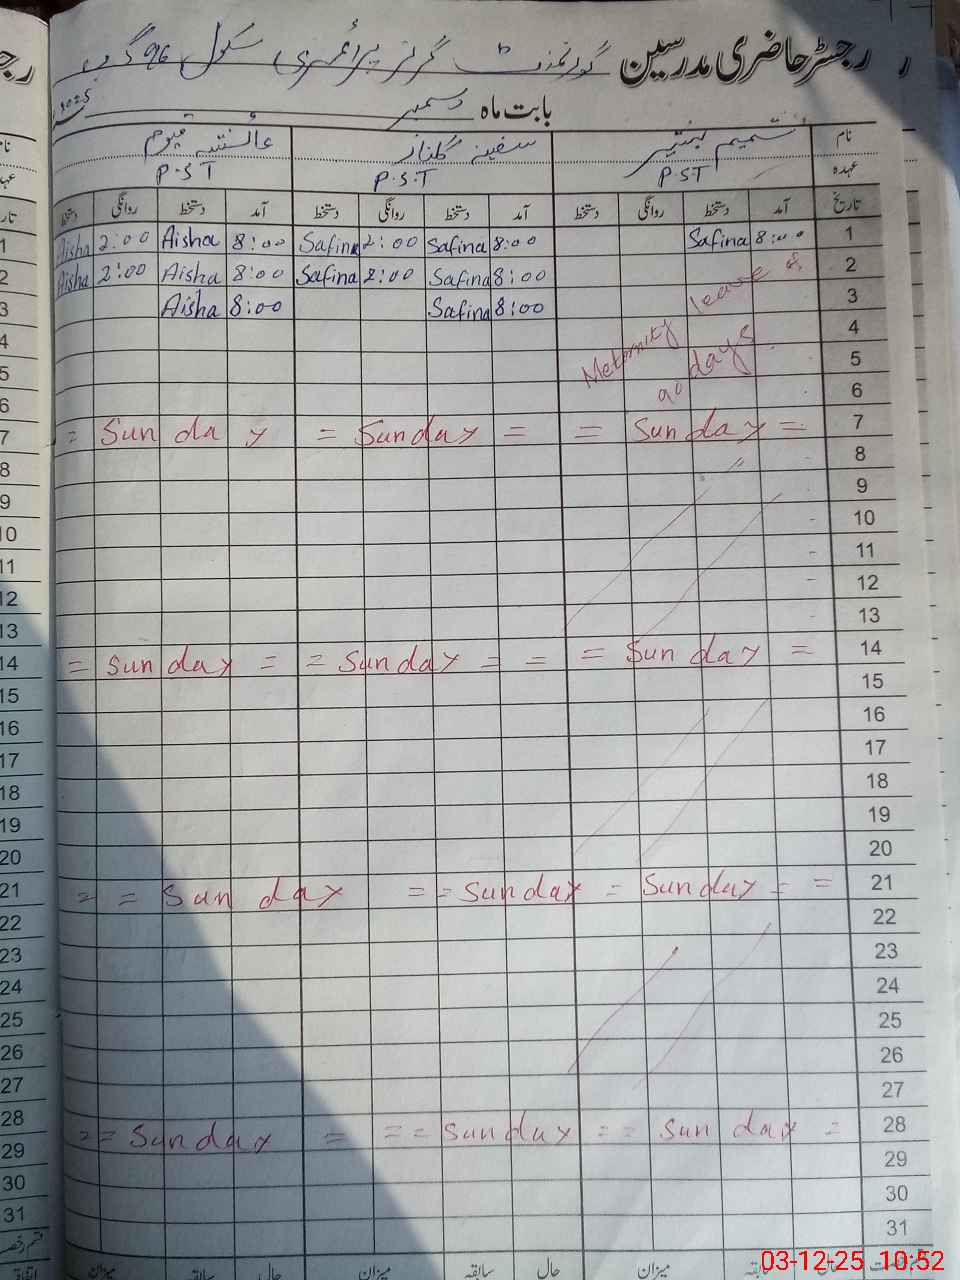 رجسٹر حاضری مدرسین گورنمنٹ گرلز پرائمری سکول 96 گ ب
بابت ماہ دسمبر 2025
نام
شمیم اختر سفینہ گلناز عائشہ قیوم
عہدہ P.S.T P.S.T P.S.T
تاریخ آمد دستخط روانگی دستخط آمد دستخط روانگی دستخط آمد دستخط روانگی دستخط
Aisha 2:00 Aisha 8:00 Safina 2:00 Safina 8:00 Safina 8:00 1
Aisha 2:00 Aisha 8:00 Safina 2:00 Safina 8:00 2
Aisha 8:00 Safina 8:00 3
Meternity leave
90 days
4
5
6
= Sunday = Sunday = = Sunday = 7
8
9
10
11
12
13
= Sunday = = Sunday = = = Sunday = 14
15
16
17
18
19
20
= = Sunday = = Sunday = Sunday = = 21
22
23
24
25
26
27
= = Sunday = = = = Sunday = = Sunday = 28
29
30
31
میزان سابقہ حال میزان سابقہ حال میزان سابقہ حال
03-12-25 10:52